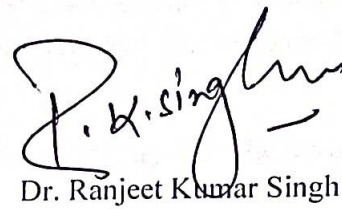 R. K. Singh
Dr. Ranjeet Kumar Singh